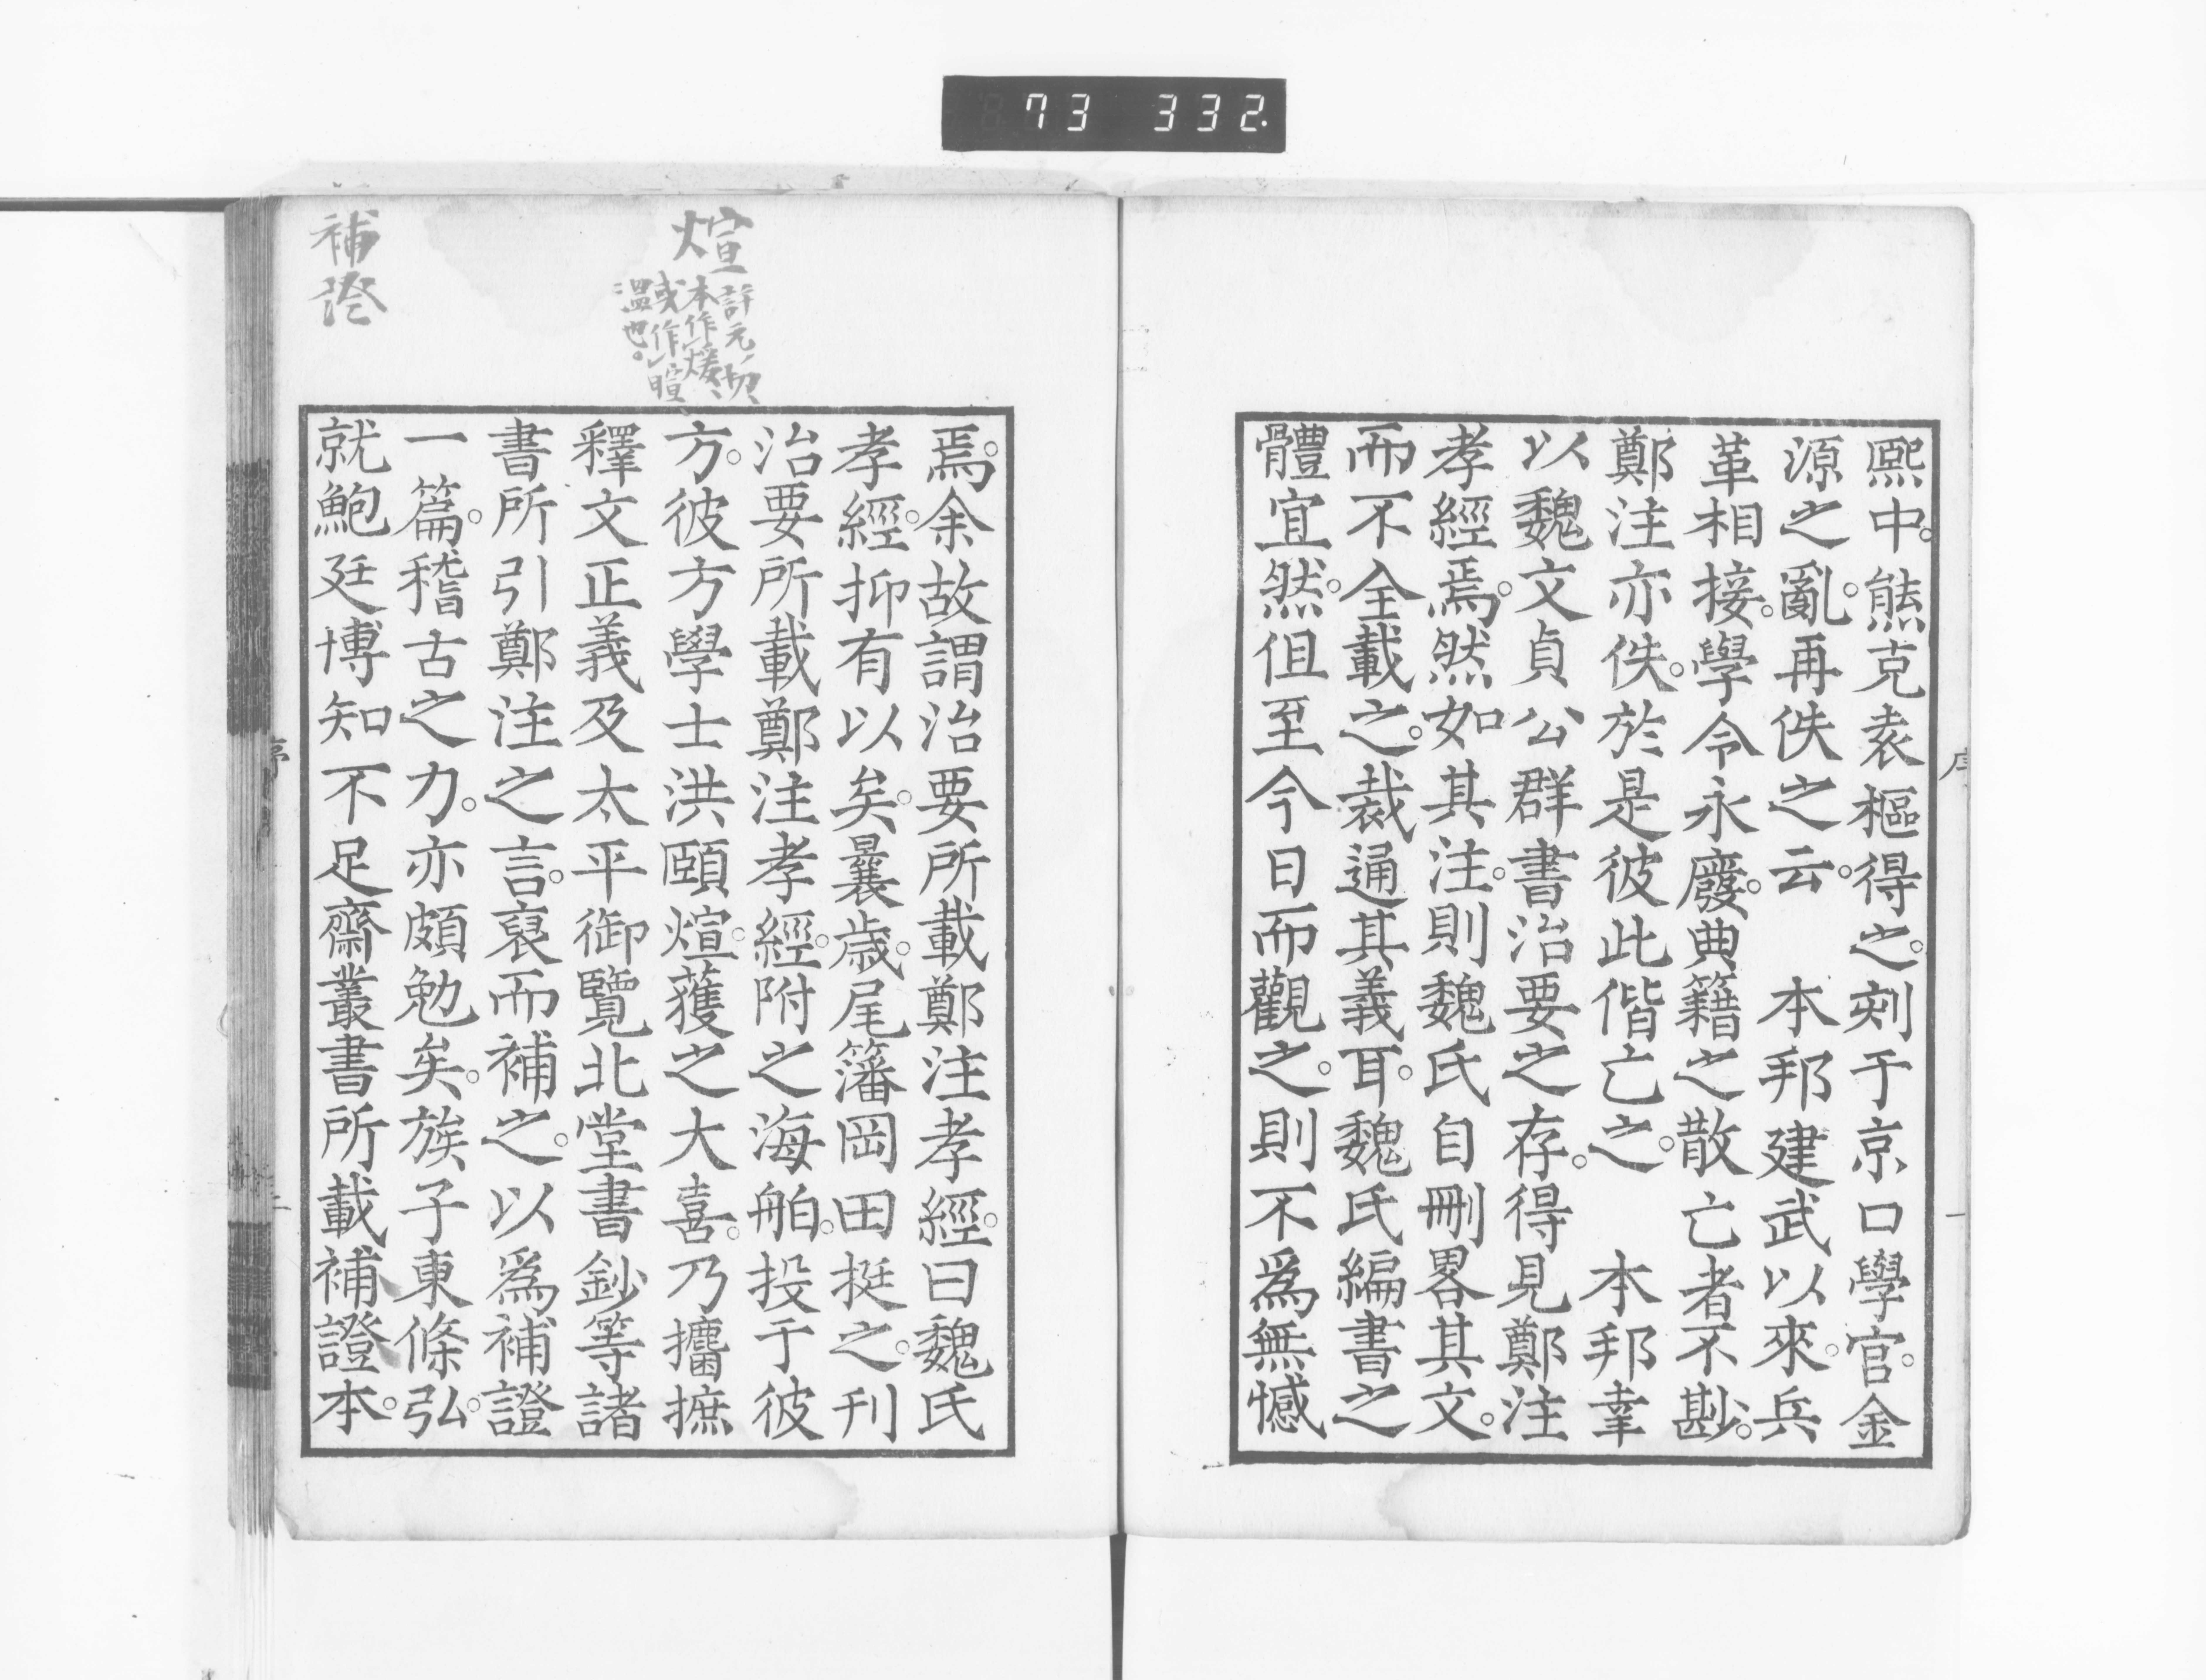 73 332.
熙中。熊克袁樞得之。刻于京口學官。金
源之亂。再佚之云。 本邦建武以來。兵
革相接。學令永廢。典籍之散亡者不尠。
鄭注亦佚。於是彼此偕亡之。 本邦幸
以魏文貞公群書治要之存。得見鄭注
孝經焉。然如其注。則魏氏自刪畧其文。
而不全載之。裁通其義耳。魏氏編書之
體宜然。但至今日而觀之。則不爲無憾
序
一
焉。余故謂治要所載鄭注孝經。曰魏氏
孝經。抑有以矣。曩歲。尾籓岡田挺之。刊
治要所載鄭注孝經。附之海舶。投于彼
方。彼方學士洪頤煊。獲之大喜。乃攟摭
釋文正義及太平御覽北堂書鈔等諸
書所引鄭注之言。裒而補之。以爲補證
一篇。稽古之力。亦頗勉矣。族子東條弘。
就鮑廷博知不足齋叢書所載補證本。
煊
許元ノ切
本作煖
或作暄
溫也。
補證